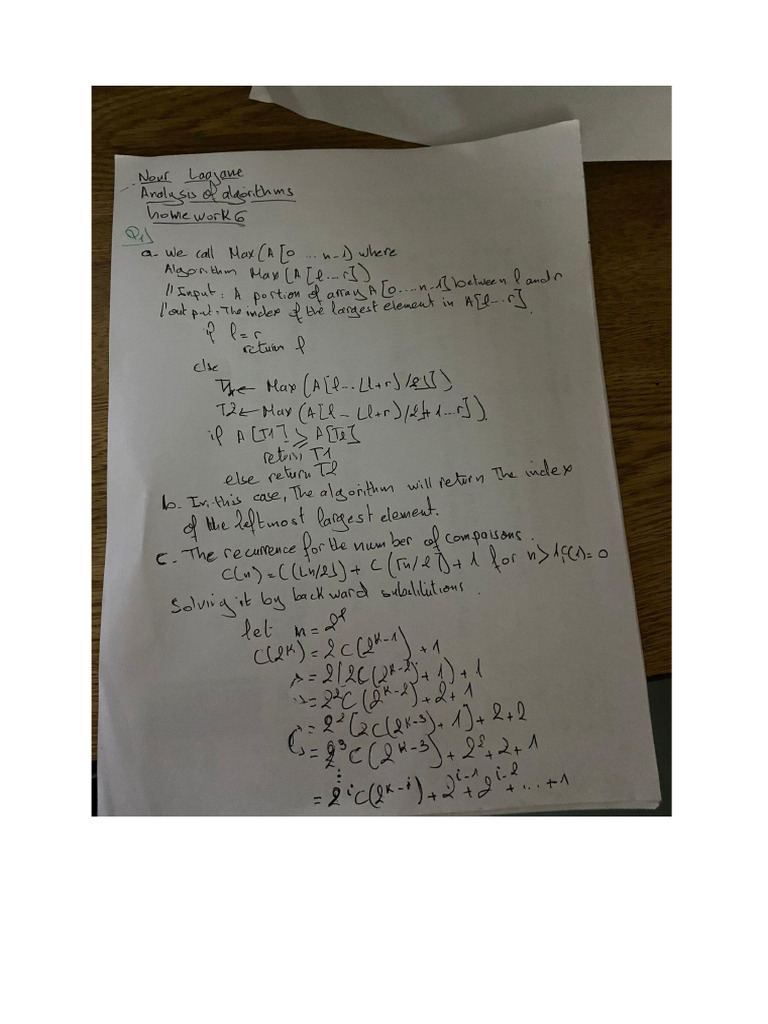 Nour Lagzane
Analysis of algorithms
homework 6
Q1)
a- We call Max(A[0 ... n-1) where
Algorithm Max(A[l...r])
// Input: A portion of array A[0....n-1] between l and r
// output: The index of the largest element in A[l...r].
if l = r
return l
else
T1 ← Max(A[l...⌊l+r)/2⌋])
T2 ← Max(A[l - ⌊l+r)/2⌋+1...r])
if A[T1] ⩾ A[T2]
return T1
else return T2
b- In this case, The algorithm will return The index
of the leftmost largest element.
c- The recurrence for the number of compaisons.
C(n) = C(⌊n/2⌋) + C(⌈n/2⌉) + 1 for n > 1, C(1) = 0
Solving it by backward substitutions.
let n = 2^k
C(2^k) = 2C(2^{k-1}) + 1
= 2[2C(2^{k-2}) + 1) + 1
= 2^2 C(2^{k-2}) + 2 + 1
= 2^2 [2C(2^{k-3}) + 1] + 2 + 2
= 2^3 C(2^{k-3}) + 2^2 + 2 + 1
⋮
= 2^i C(2^{k-i}) + 2^{i-1} + 2^{i-2} + ... + 1